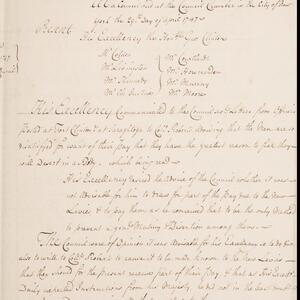 At a Council held at the Council Chamber in the City of New
York the 29th Day of April 1747
Present
His Excellency the Honble Geo Clinton
Mr Colden
Mr Livingston
Mr Kennedy
Mr De Lancey
Mr Courtlandt
Mr Horsmanden
Mr Murray
Mr Moore
His Excellency Communicated to the Council a Letter from Officers
posted at Fort Clinton at Saraghtoga to Coll Roberts advising that the Men are so
dissatisfied for want of their Pay that they have the greatest reason to fear they
will Desert in a Body which being read
His Excellency desired the Advice of the Council whether it were
not adviseable for him to draw for part of the Pay due to the New
Levies & to pay them as he conceived that to be the only Method
to prevent a general Mutiny & Desertion among them
The Council were of Opinion it was adviseable for his Excellency so to do &
also to write to Coll Roberts to cause it to be made known to the New Levies
that they should for the present receive part of their Pay & that as his Excelly
Daily expected Instructions from his Majesty he did not in the least